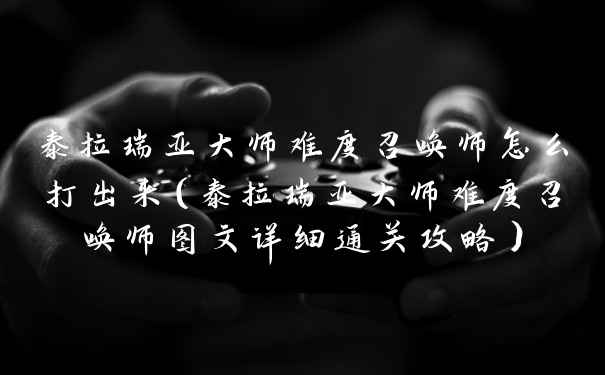 泰拉瑞亚大师难度召唤师怎么
打出来(泰拉瑞亚大师难度召
唤师图文详细通关攻略)